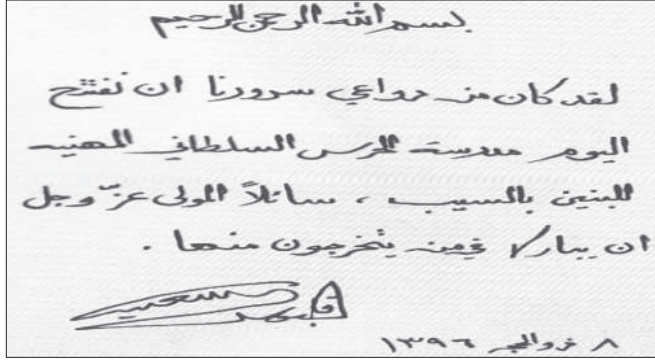 بسم الله الرحمن الرحيم
لقد كان من دواعي سرورنا ان نفتتح
اليوم مدرسة الحرس السلطاني المهنيه
للبنين بالسيب ، سائلاً المولى عزّ وجل
ان يبارك فيمن يتخرجون منها .
٨ ذو الحجه ١٣٩٦